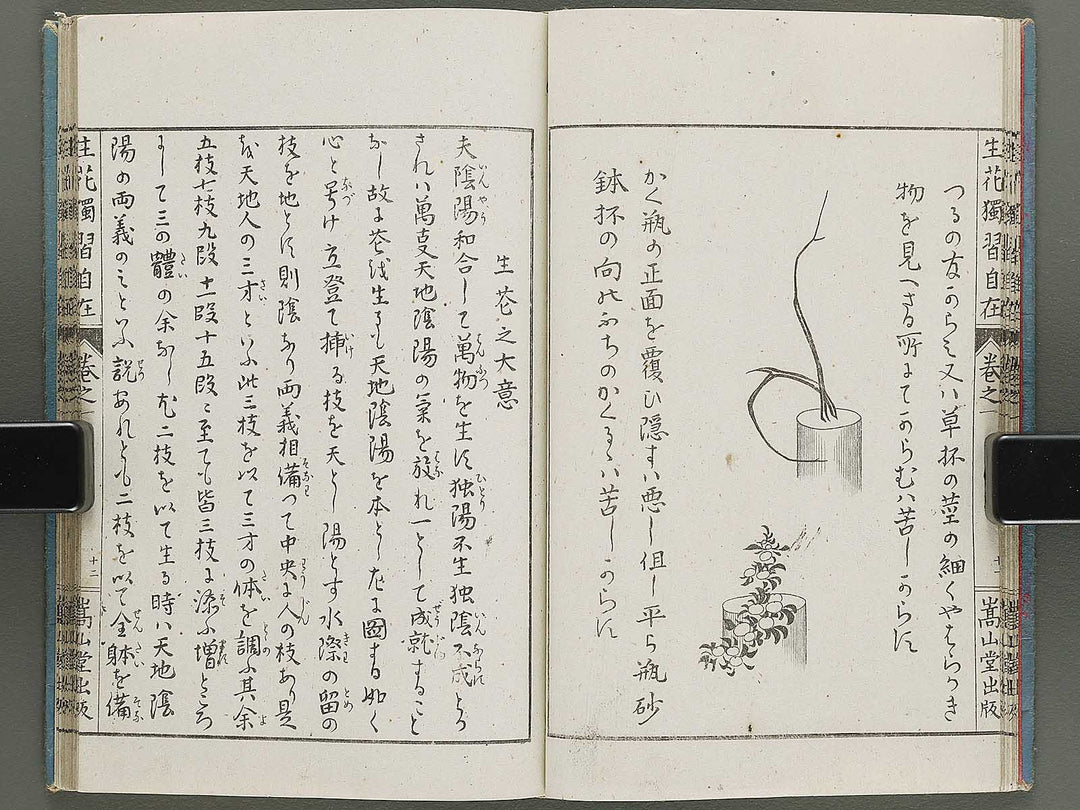 生花獨習自在
巻之一
十二
嵩山堂出版
つるの有からミ又ハ草杯の莖の細くやはらかき
物を見へさる所にてからむハ苦しからに
かく瓶の正面を覆ひ隠すハ悪し但し平ら瓶砂
鉢杯の向のふちのかくるゝハ苦しからに
生花之大意
夫陰陽和合して萬物を生に独陽不生独陰不成とう
されハ萬支天地陰陽の氣を放れ一として成就すること
なし故に花を生るも天地陰陽を本とし左に圖する如く
心と号け立登て挿る枝を天とし陽とす水際の留の
枝を地とに則陰なり両義相備つて中央に人の枝あり是
を天地人の三才といふ此三枝を以て三才の体を調ふ其余
五枝七枝九段十一段十五段に至ても皆三枝に添ふ増ところ
にして三の體の余なし尤二枝を以て生る時ハ天地陰
陽の両義のミといふ説あれとも二枝を以て全躰を備
生花獨習自在
巻之一
十二
嵩山堂出版